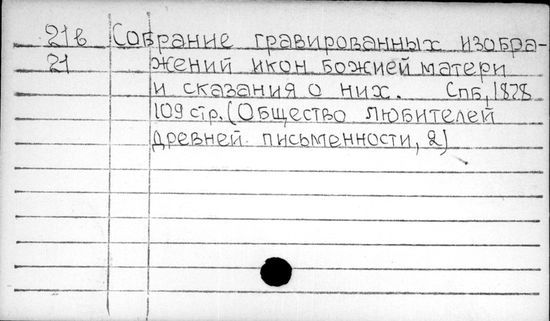 21в Собрание гравированных изобра-
21 жений икон божией матери
и сказания о них. Спб, 1878
109 стр. (Общество любителей
древней письменности, 2)